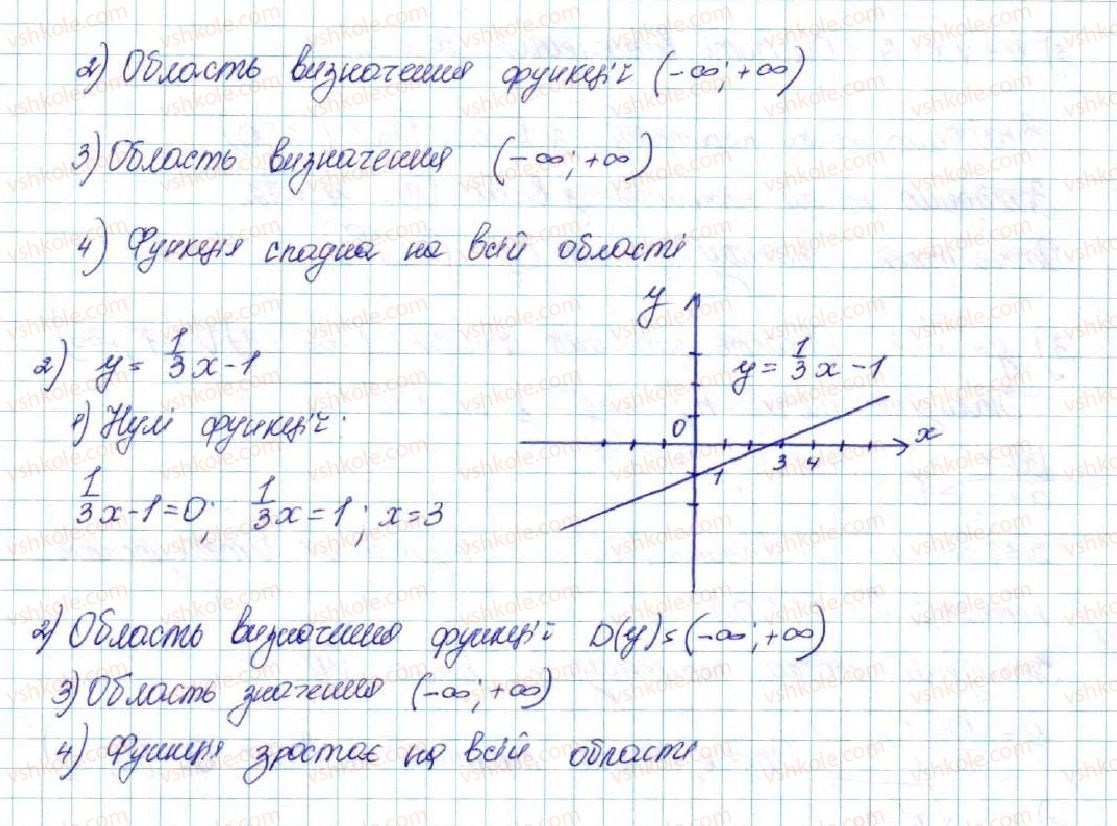 2) Область визначення функції (-∞; +∞)
3) Область визначення (-∞; +∞)
4) Функція спадна на всій області
2) y = 1/3 x - 1
1) Нулі функції:
1/3 x - 1 = 0; 1/3 x = 1; x = 3
y
y = 1/3 x - 1
0
x
3 4
1
2) Область визначення функцій D(y) = (-∞; +∞)
3) Область значення (-∞; +∞)
4) Функція зростає на всій області
vshkole.com